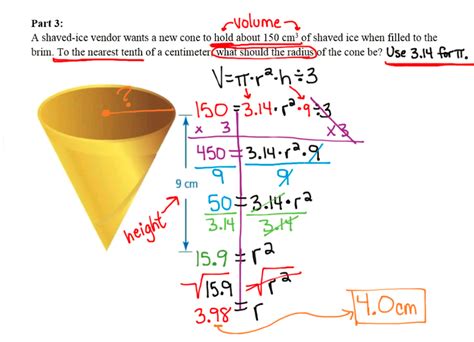 volume
Part 3:
A shaved-ice vendor wants a new cone to hold about 150 cm³ of shaved ice when filled to the
brim. To the nearest tenth of a centimeter, what should the radius of the cone be? Use 3.14 for π.
?
V=π·r²·h÷3
150 = 3.14·r²·9÷3
x 3 x3
450 = 3.14·r²·9
9 9
9 cm
height
50 = 3.14·r²
3.14 3.14
15.9 = r²
√15.9 = √r²
3.98 = r
4.0cm